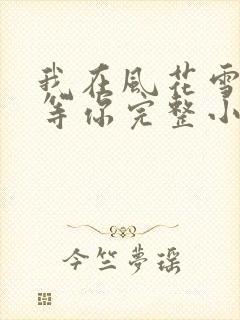 我在風花雪
等你完整小
今竺夢瑤